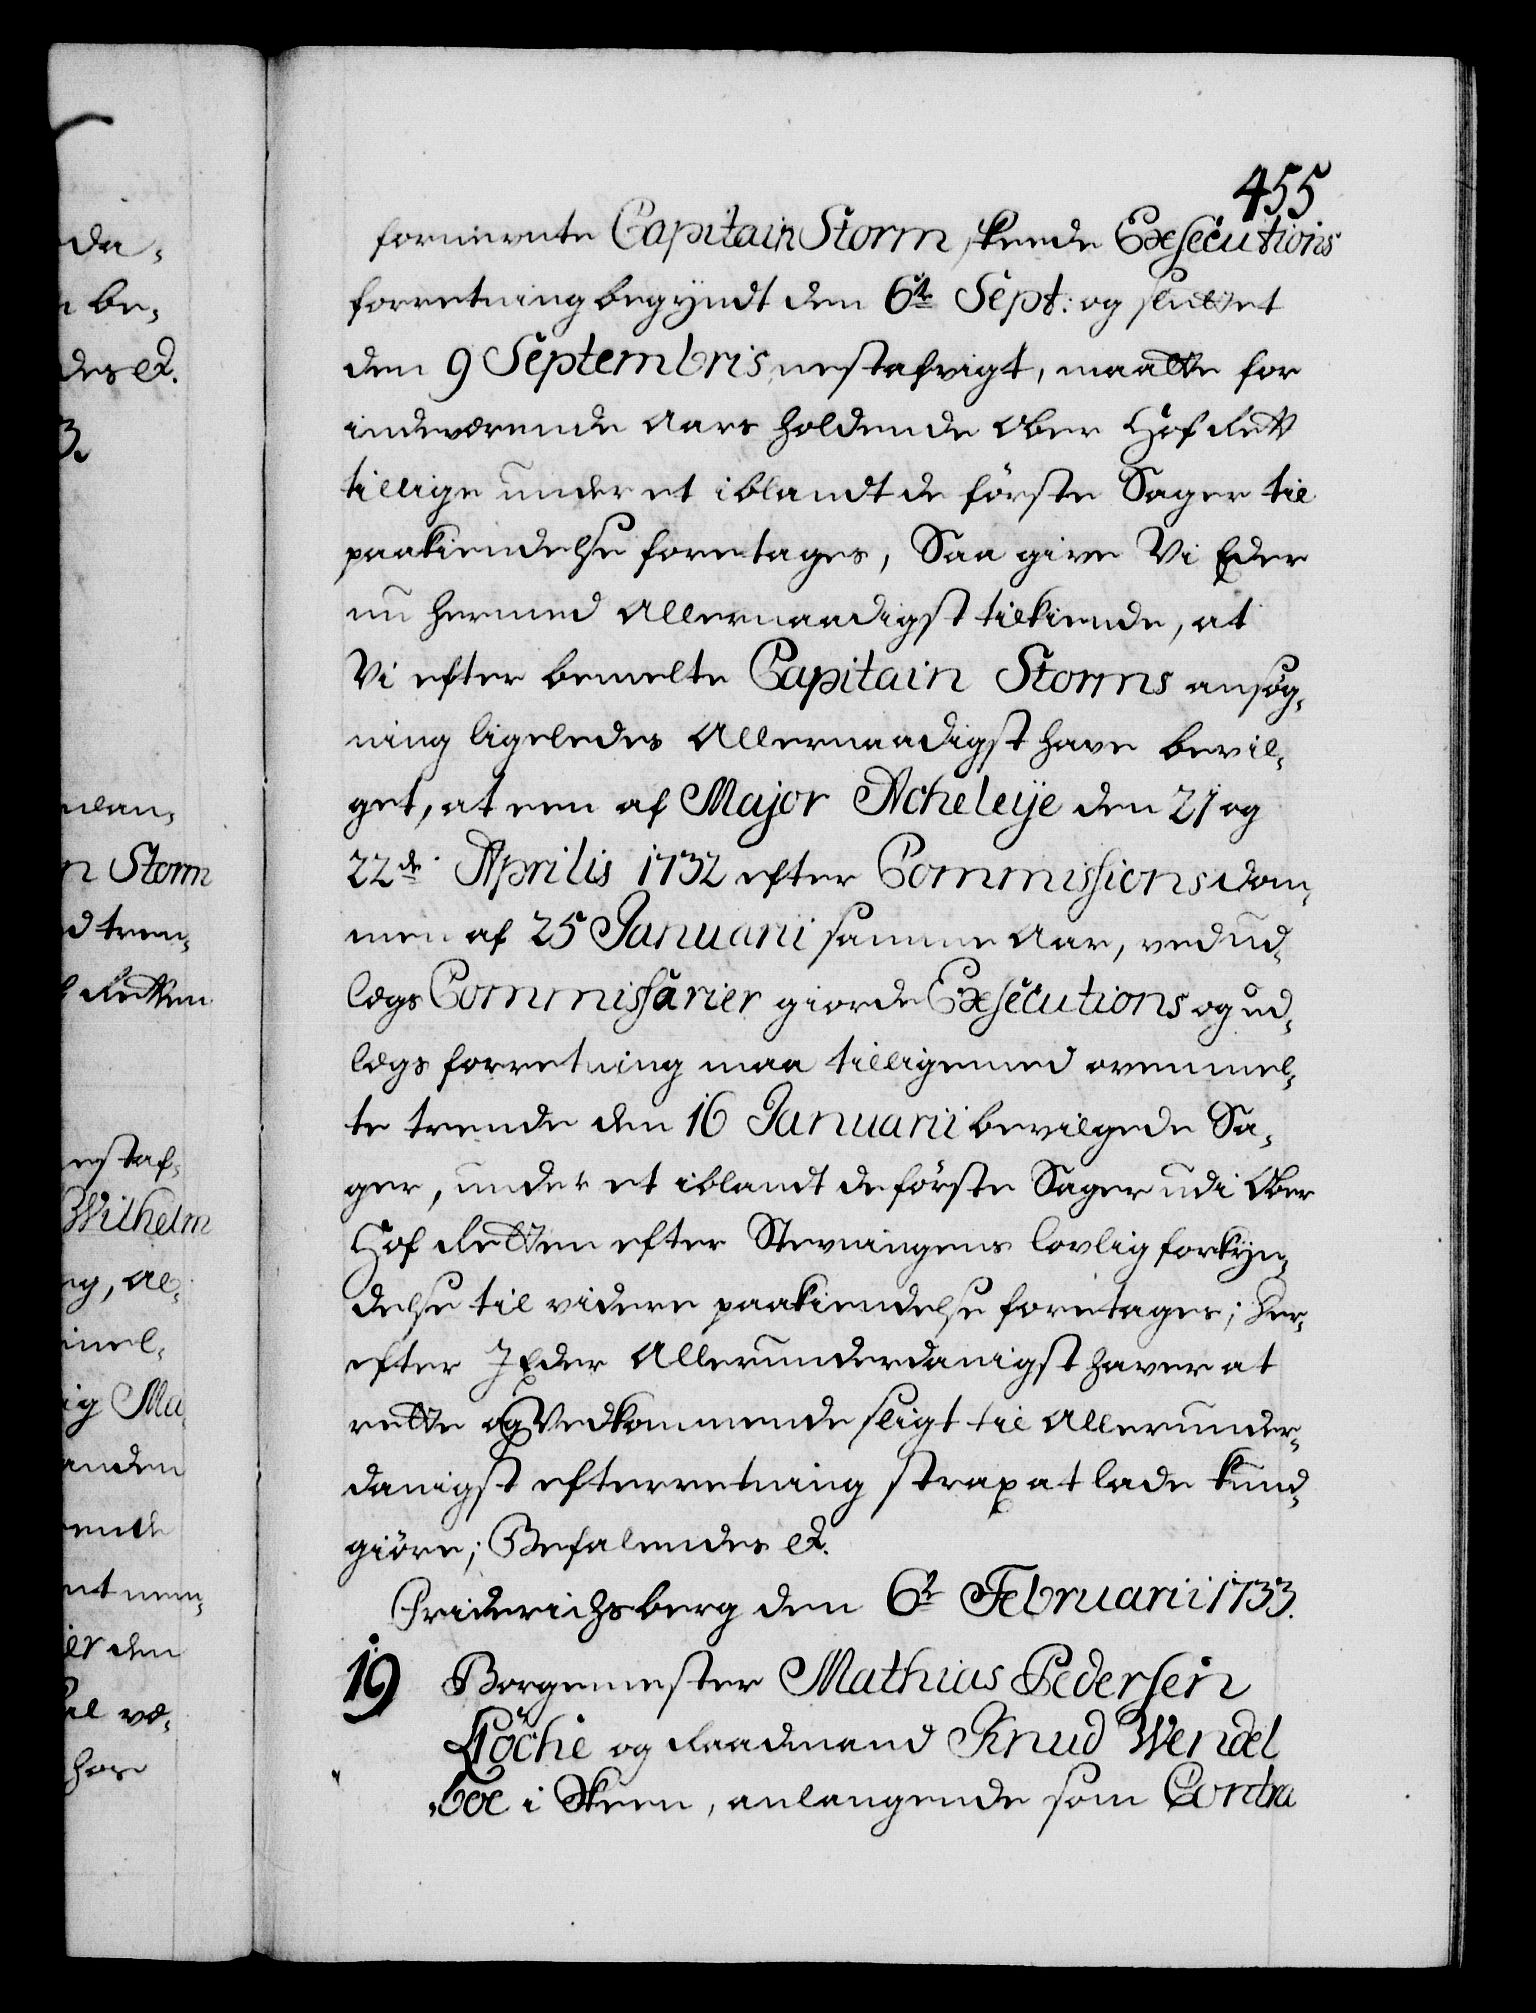 455
fornevnte Capitain Storm skeede Exsecutions
forretning begyndt den 6te Sept: og sluttet
den 9 Septembris nestafvigt, maatte for
indeværende Aars holdende Ober Hof Rett
tillige under et iblandt de förste Sager til
paakiendelse foretages, Saa give Vi Eder
nu hermed Allernaadigst tilkiende, at
Vi efter bemelte Capitain Storms ansøg-
ning ligeledes Allernaadigst have bevil-
get, at een af Major Acheleije den 21 og
22de Aprilis 1732 efter Commissions dom-
men af 25 Januarii samme Aar, ved ud-
lægs Commissarier giorde Exsecutions og ud-
lægs forretning maa tilligemed ovenmel-
te trende den 16 Januarii bevilgede Sa-
ger, under et iblandt de förste Sager udi Ober
Hof Retten efter Stevningens lovlig forkyn-
delse til videre paakiendelse foretages; Her-
efter I Eder Allerunderdanigst haver at
rette og Vedkommende sligt til Allerunder-
danigst efterretning strax at lade kund-
giöre; Befalendes etc.
Friderichsberg den 6te Februarii 1733.
19 Borgemester Mathias Pedersen
Löche og Raadmand Knud Wendel
boe i Skeen, anlangende som Contra
da-
be-
des etc.
3.
anlan-
n Storm
d tren-
Retten
nestaf-
Wilhelm
ng, al-
mel-
ig Ma
anden
vente
nt nem-
er den
el væ-
hos